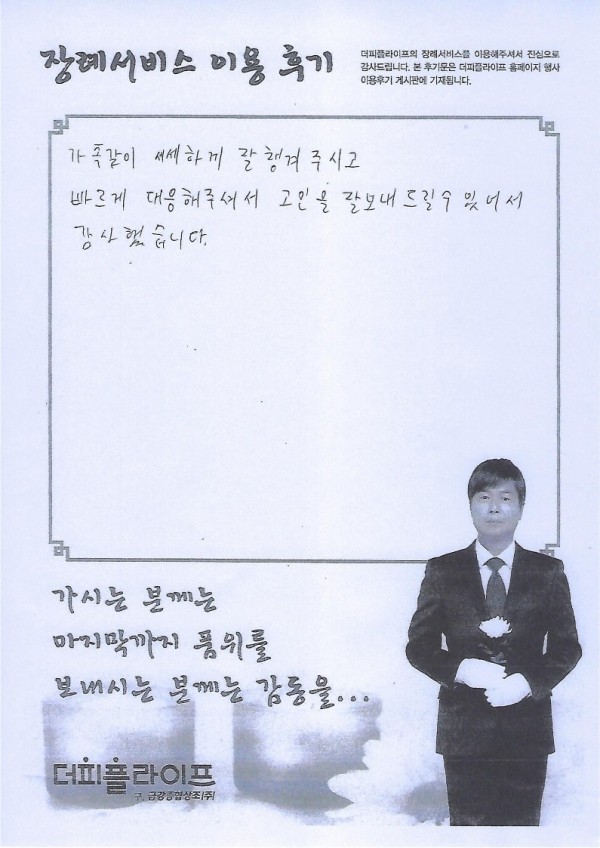 장례서비스 이용 후기
더피플라이프의 장례서비스를 이용해주셔서 진심으로
감사드립니다. 본 후기문은 더피플라이프 홈페이지 행사
이용후기 게시판에 기재됩니다.
가족같이 세세하게 잘 챙겨주시고
빠르게 대응해주셔서 고인을 잘보내드릴수 있어서
감사했습니다.
가시는 분께는
마지막까지 품위를
보내시는 분께는 감동을...
더피플라이프
구, 금강종합상조(주)